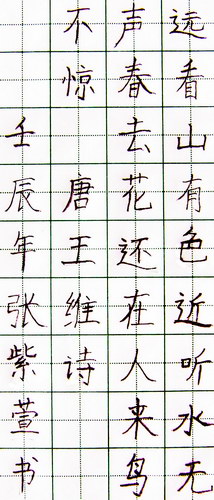 远看山有色近听水无
声春去花还在人来鸟
不惊 唐王维诗
壬辰年张紫萱书